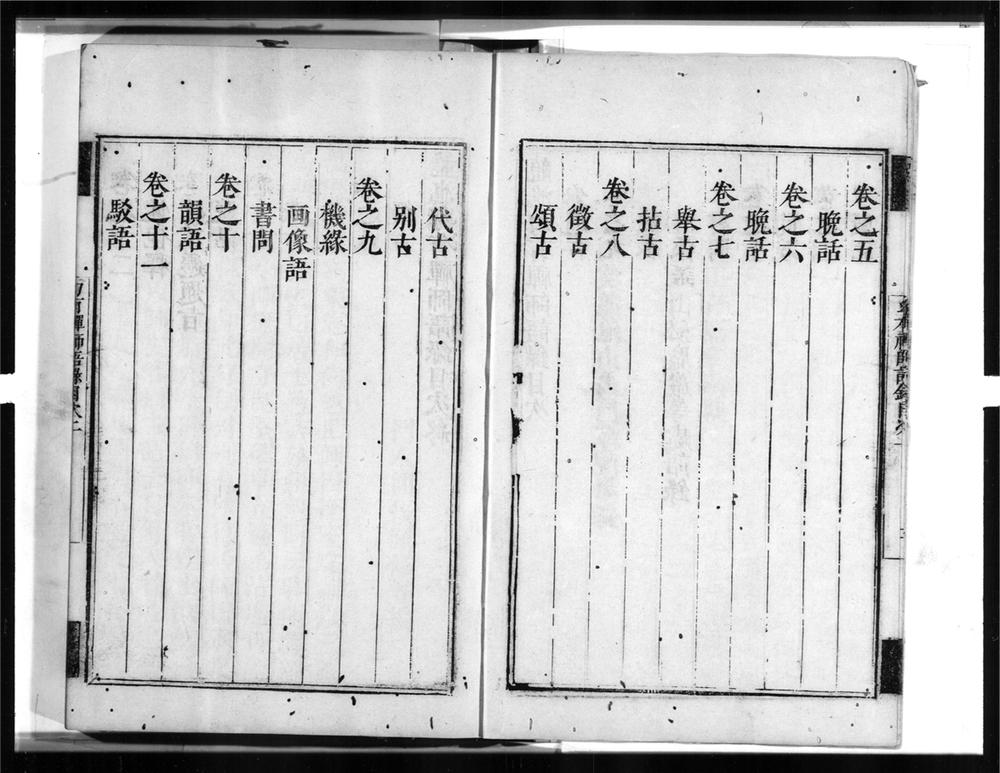 卷之五
晚話
卷之六
晚話
卷之七
舉古
拈古
卷之八
徵古
頌古
代古
别古
卷之九
機緣
画像語
書問
卷之十
韻語
卷之十一
駁語